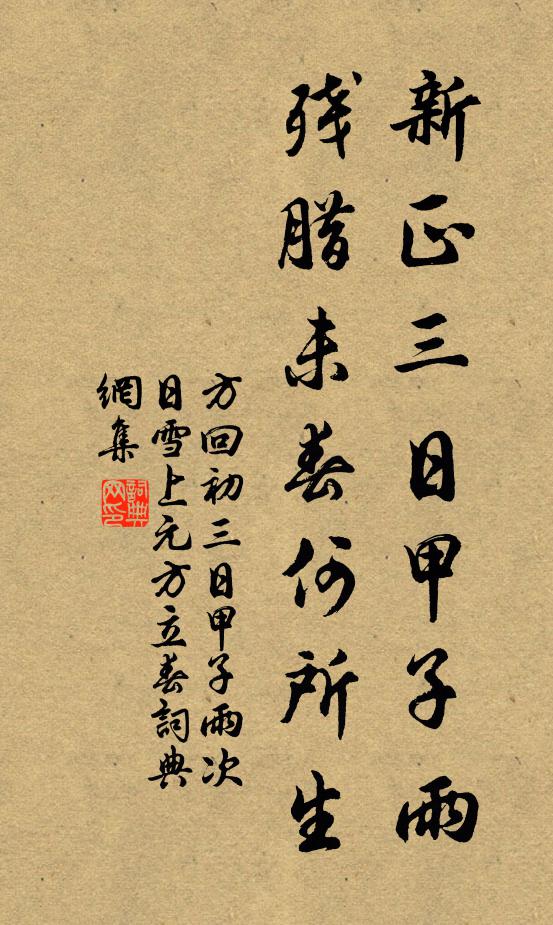 新正三日甲子雨
残腊未春何所生
方回初三日甲子雨次
日雪上元方立春詞典
網集
詞典
网印